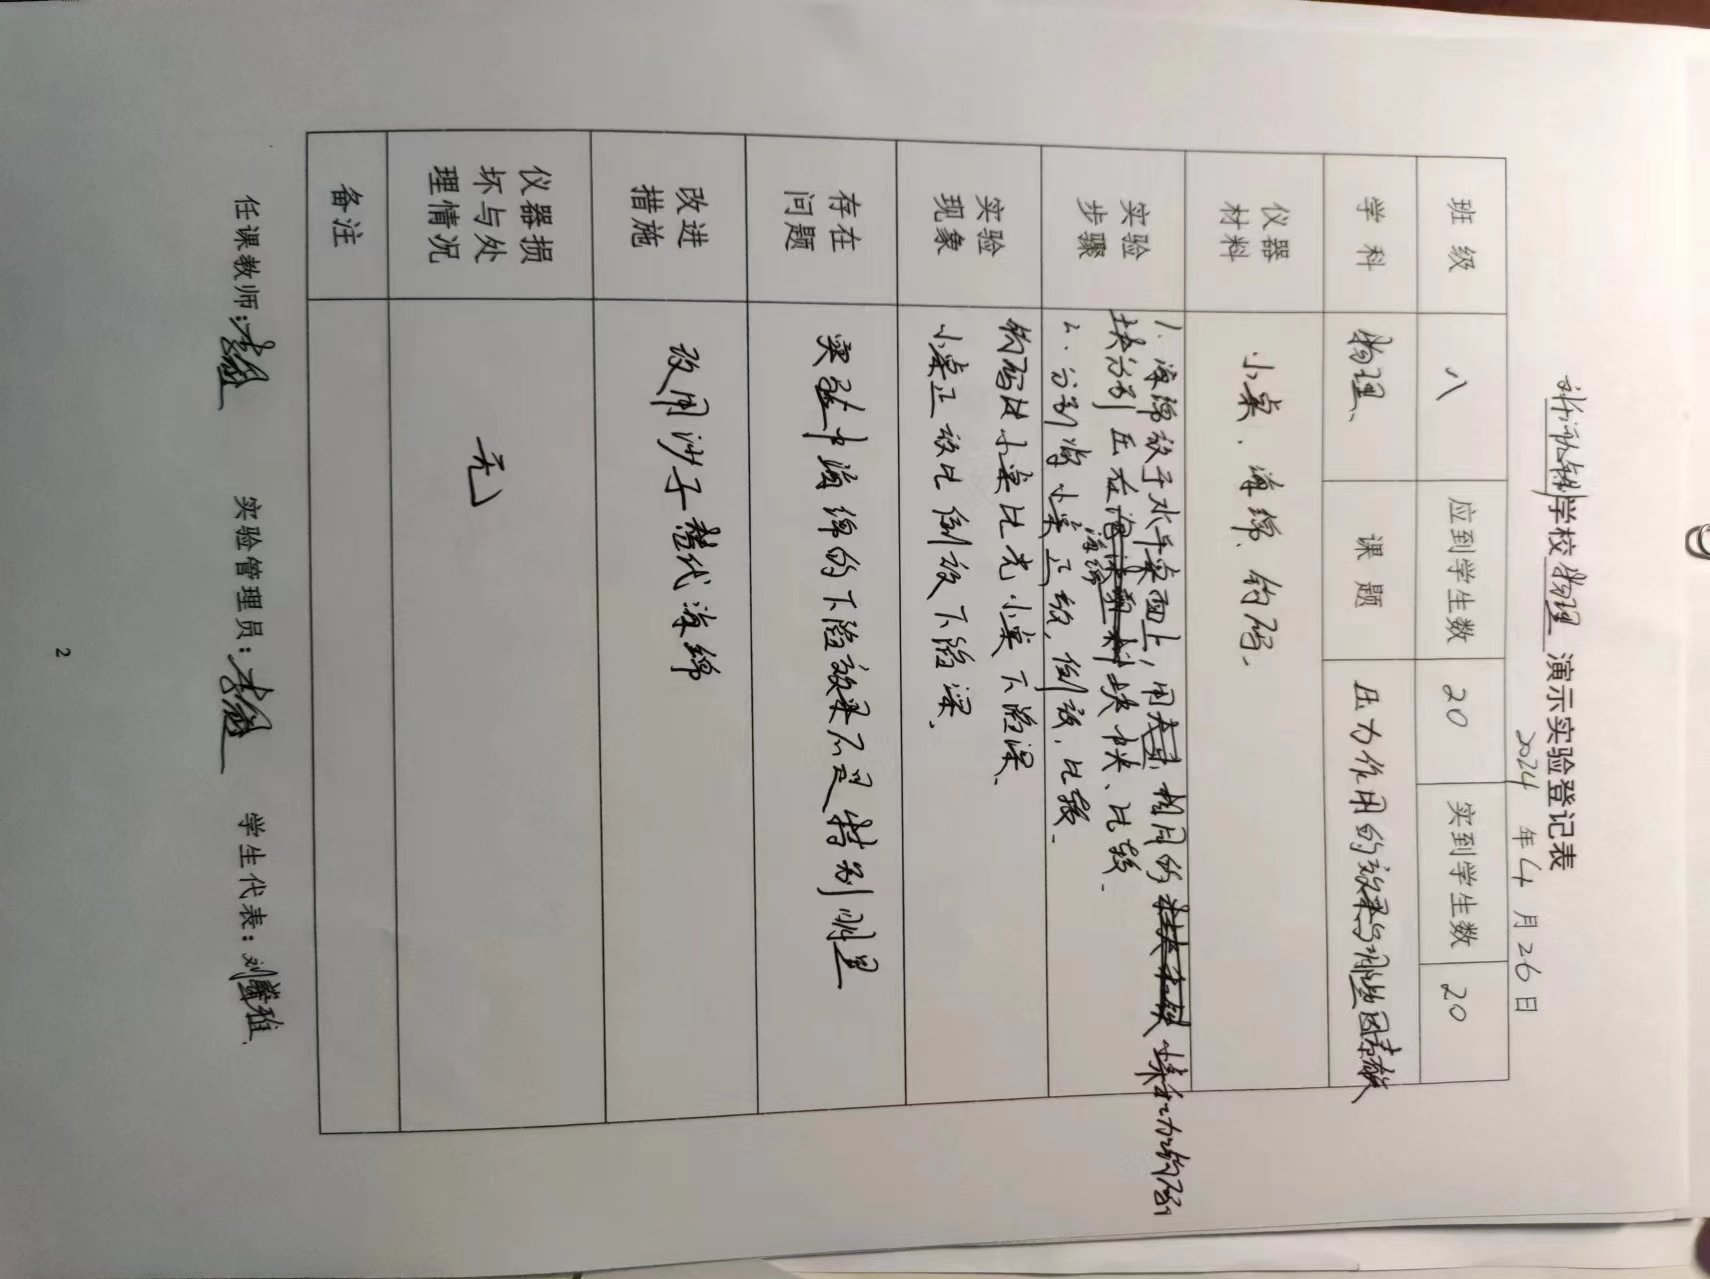 学校物理 演示实验登记表
2024 年 4 月 26 日
班 级 八 应到学生数 20 实到学生数 20
学 科 物理 课 题 压力作用的效果与哪些因素有关
仪器材料 小桌、海绵、钩码.
实验步骤 1. 海绵放于水平桌面上,用 相同的 钩码
块分别压在 海绵 块、比较.
2. 分别将小桌正放,倒放,比较.
实验现象 钩码 小桌比 小桌下陷深.
小桌正放比倒放下陷深.
存在问题 实验中海绵的下陷效果不是特别明显
改进措施 改用沙子替代海绵
仪器损坏与处理情况 无
备注
任课教师: 实验管理员: 学生代表:刘
2